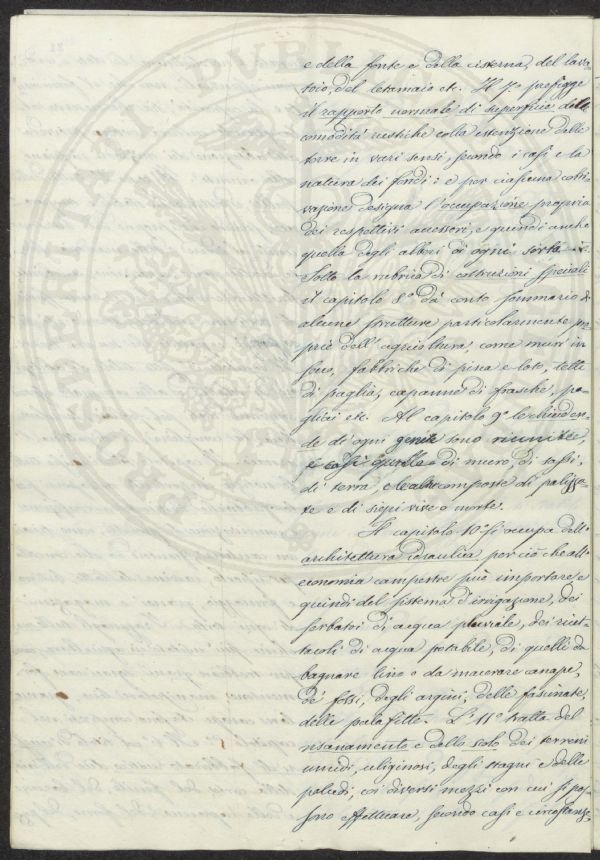 e della fonte e della cisterna, del lava
toio, del letamaio etc. Il 7º prefigge
il rapporto normale di superficie delle
comodità rustiche colla estensione delle
terre in varj sensi, secondo i casi e la
natura dei fondi: e per ciascuna colti
vazione designa l'occupazione propria
dei rispettivi accessorj, e quindi anche
quella degli alberi di ogni sorta.
Sotto la rubrica di costruzioni speciali
il capitolo 8º dà conto sommario di
alcune strutture particolarmente pro
prie dell'agricoltura, come muri in
fabbriche di pisa e loto, tetti
di paglia, capanne di frasche, pa
gliai etc. Al capitolo 9º le chiuden
de di ogni genere sono riunite,
e quelle di muro, di sassi,
di terra, e le altre composte di palizza
te e di siepi vive o morte.
Il capitolo 10º si occupa dell'
architettura idraulica, per ciò che all'
economia campestre può importare, e
quindi del sistema d'irrigazione, dei
serbatoi di acqua pluviale, dei ricet
tacoli di acqua potabile, di quelli da
bagnare lino o da macerare canape,
de' fossi, degli argini, delle fascinate,
delle palafitte. L'11º tratta del
risanamento e dello scolo dei terreni
umidi, uliginosi, degli stagni e delle
paludi, coi diversi mezzi con cui si pos
sono effettuare, secondo casi e circostanze
PROSPERITATI PVBLIC